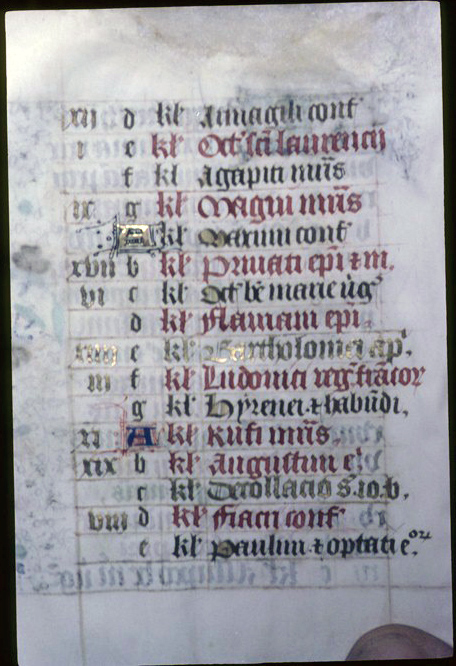 xiii d kl' Arnagili conf'
i e kl' Oct' sci laurencii
f kl' Agapiti mris
ix g kl' Magni mris
A kl' Maximi conf'
xvii b kl' Privati epi et m.
vi c kl' Oct' be marie v'g'
d kl' Flaviani epi.
xiiii e kl' Bartholomei ap'.
iii f kl' Ludovici reg' francor
g kl' Hyrenei et habudi.
xi A kl' Rufi mris
xix b kl' Augustini e'
c kl' Decollacio s. io. b.
viii d kl' Fiacri conf'
e kl' Paulini et optati e.